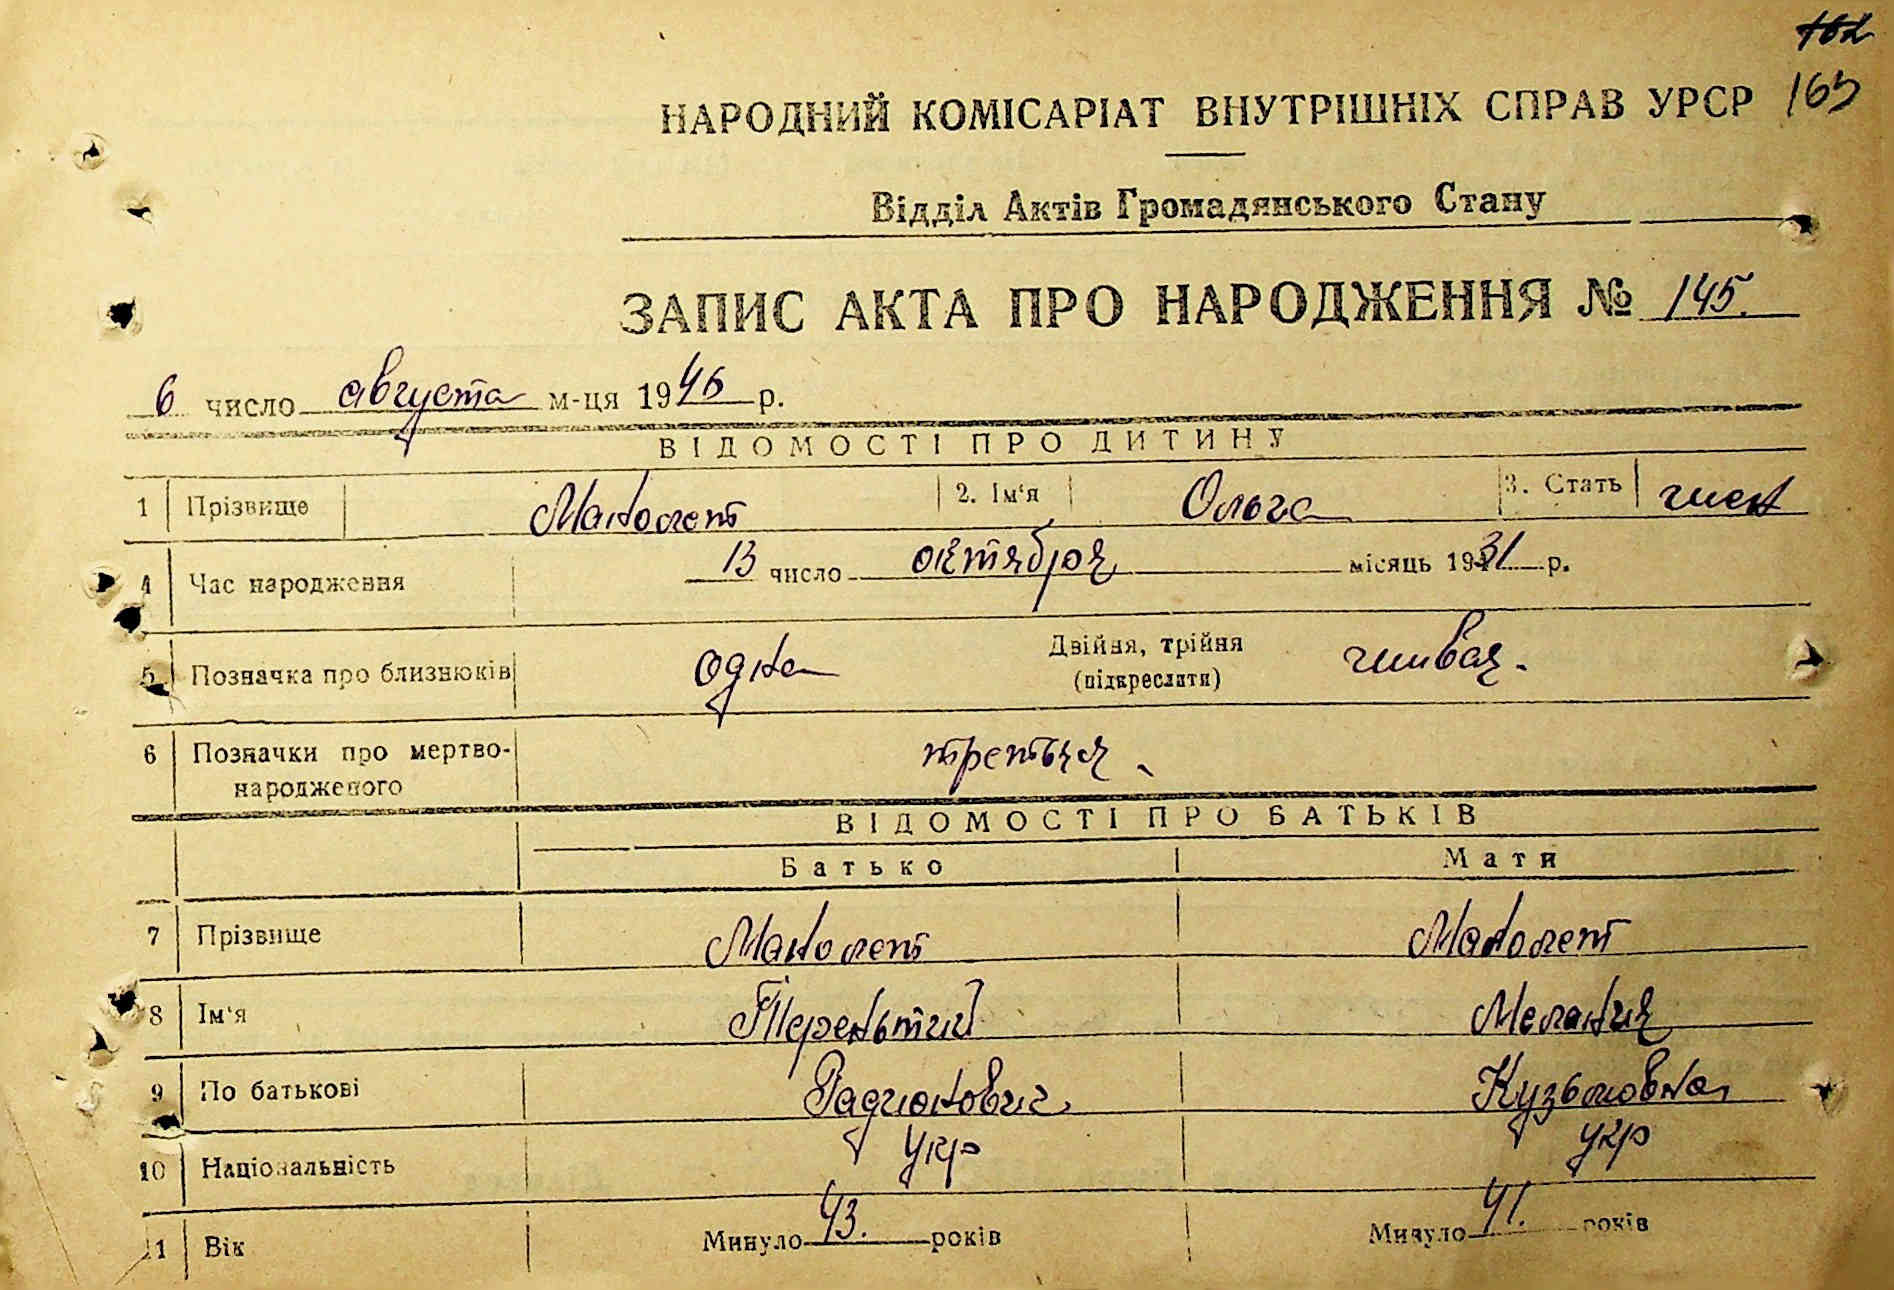 162
165
НАРОДНИЙ КОМІСАРІАТ ВНУТРІШНІХ СПРАВ УРСР
Відділ Актів Громадянського Стану
ЗАПИС АКТА ПРО НАРОДЖЕННЯ № 145.
6 число августа м-ця 1946 р.
ВІДОМОСТІ ПРО ДИТИНУ
1 Прізвище Манолет 2. Ім'я Ольга 3. Стать жен
4 Час народження 13 число октября місяць 1931 р.
5 Позначка про близнюків одна Двійня, трійня (підкреслити) живая.
6 Позначки про мертво-
народженого третья
ВІДОМОСТІ ПРО БАТЬКІВ
Батько Мати
7 Прізвище Манолет Манолет
8 Ім'я Терентьий Мелания
9 По батькові Радионович Кузьмовна
10 Національність укр укр
11 Вік Минуло 43. років Минуло 41. років